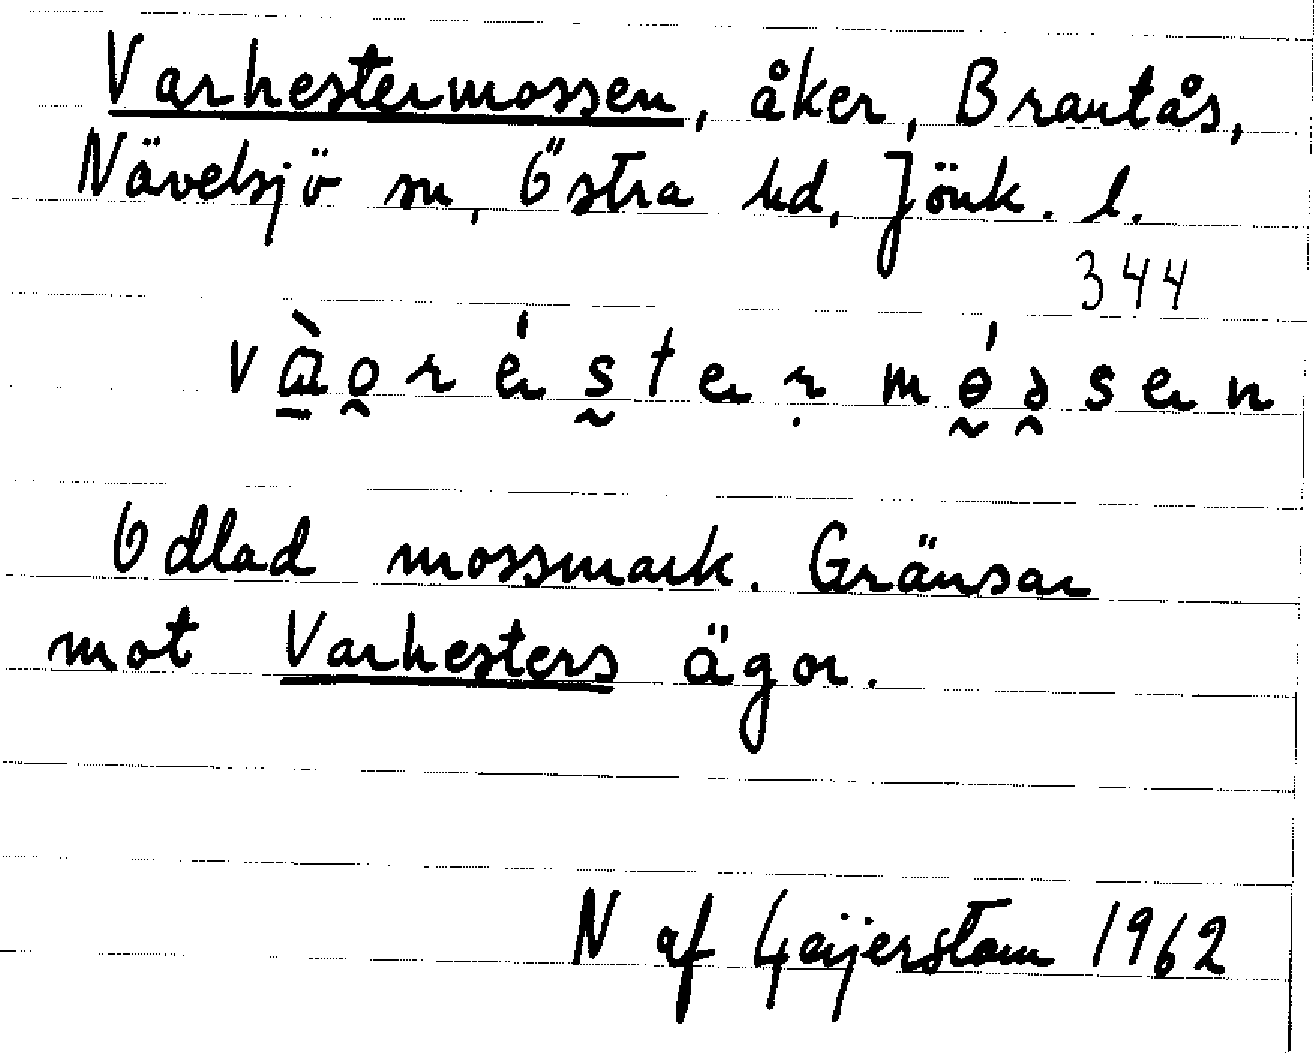 Varhestermossen, åker, Brantås,
Nävelsjö sn, Östra hd, Jönk. l.
344
vàǫręstęrmɵssen
Odlad mossmark. Gränsar
mot Varhesters ägor.
N af Geijerstam 1962